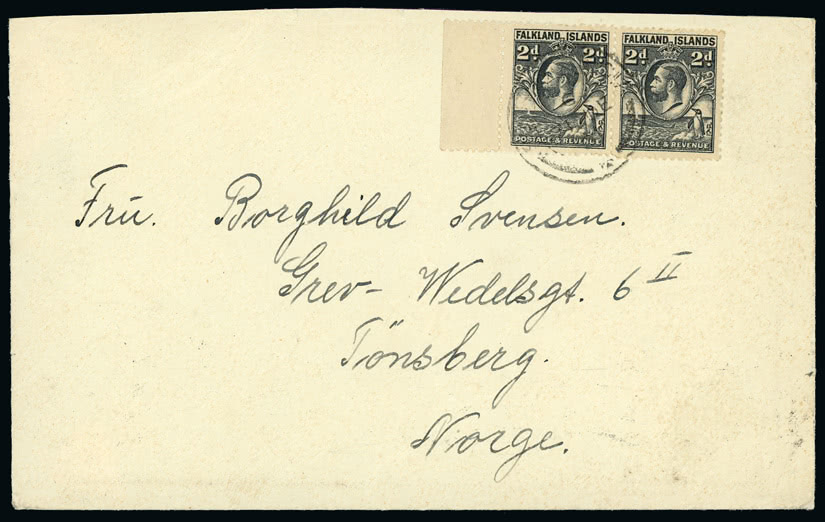 FALKLAND ISLANDS FALKLAND ISLANDS
2d 2d 2d 2d
POSTAGE & REVENUE POSTAGE & REVENUE
Frü. Borghild Svensen.
Grev- Wedelsgt. 6 II
Tönsberg.
Norge.